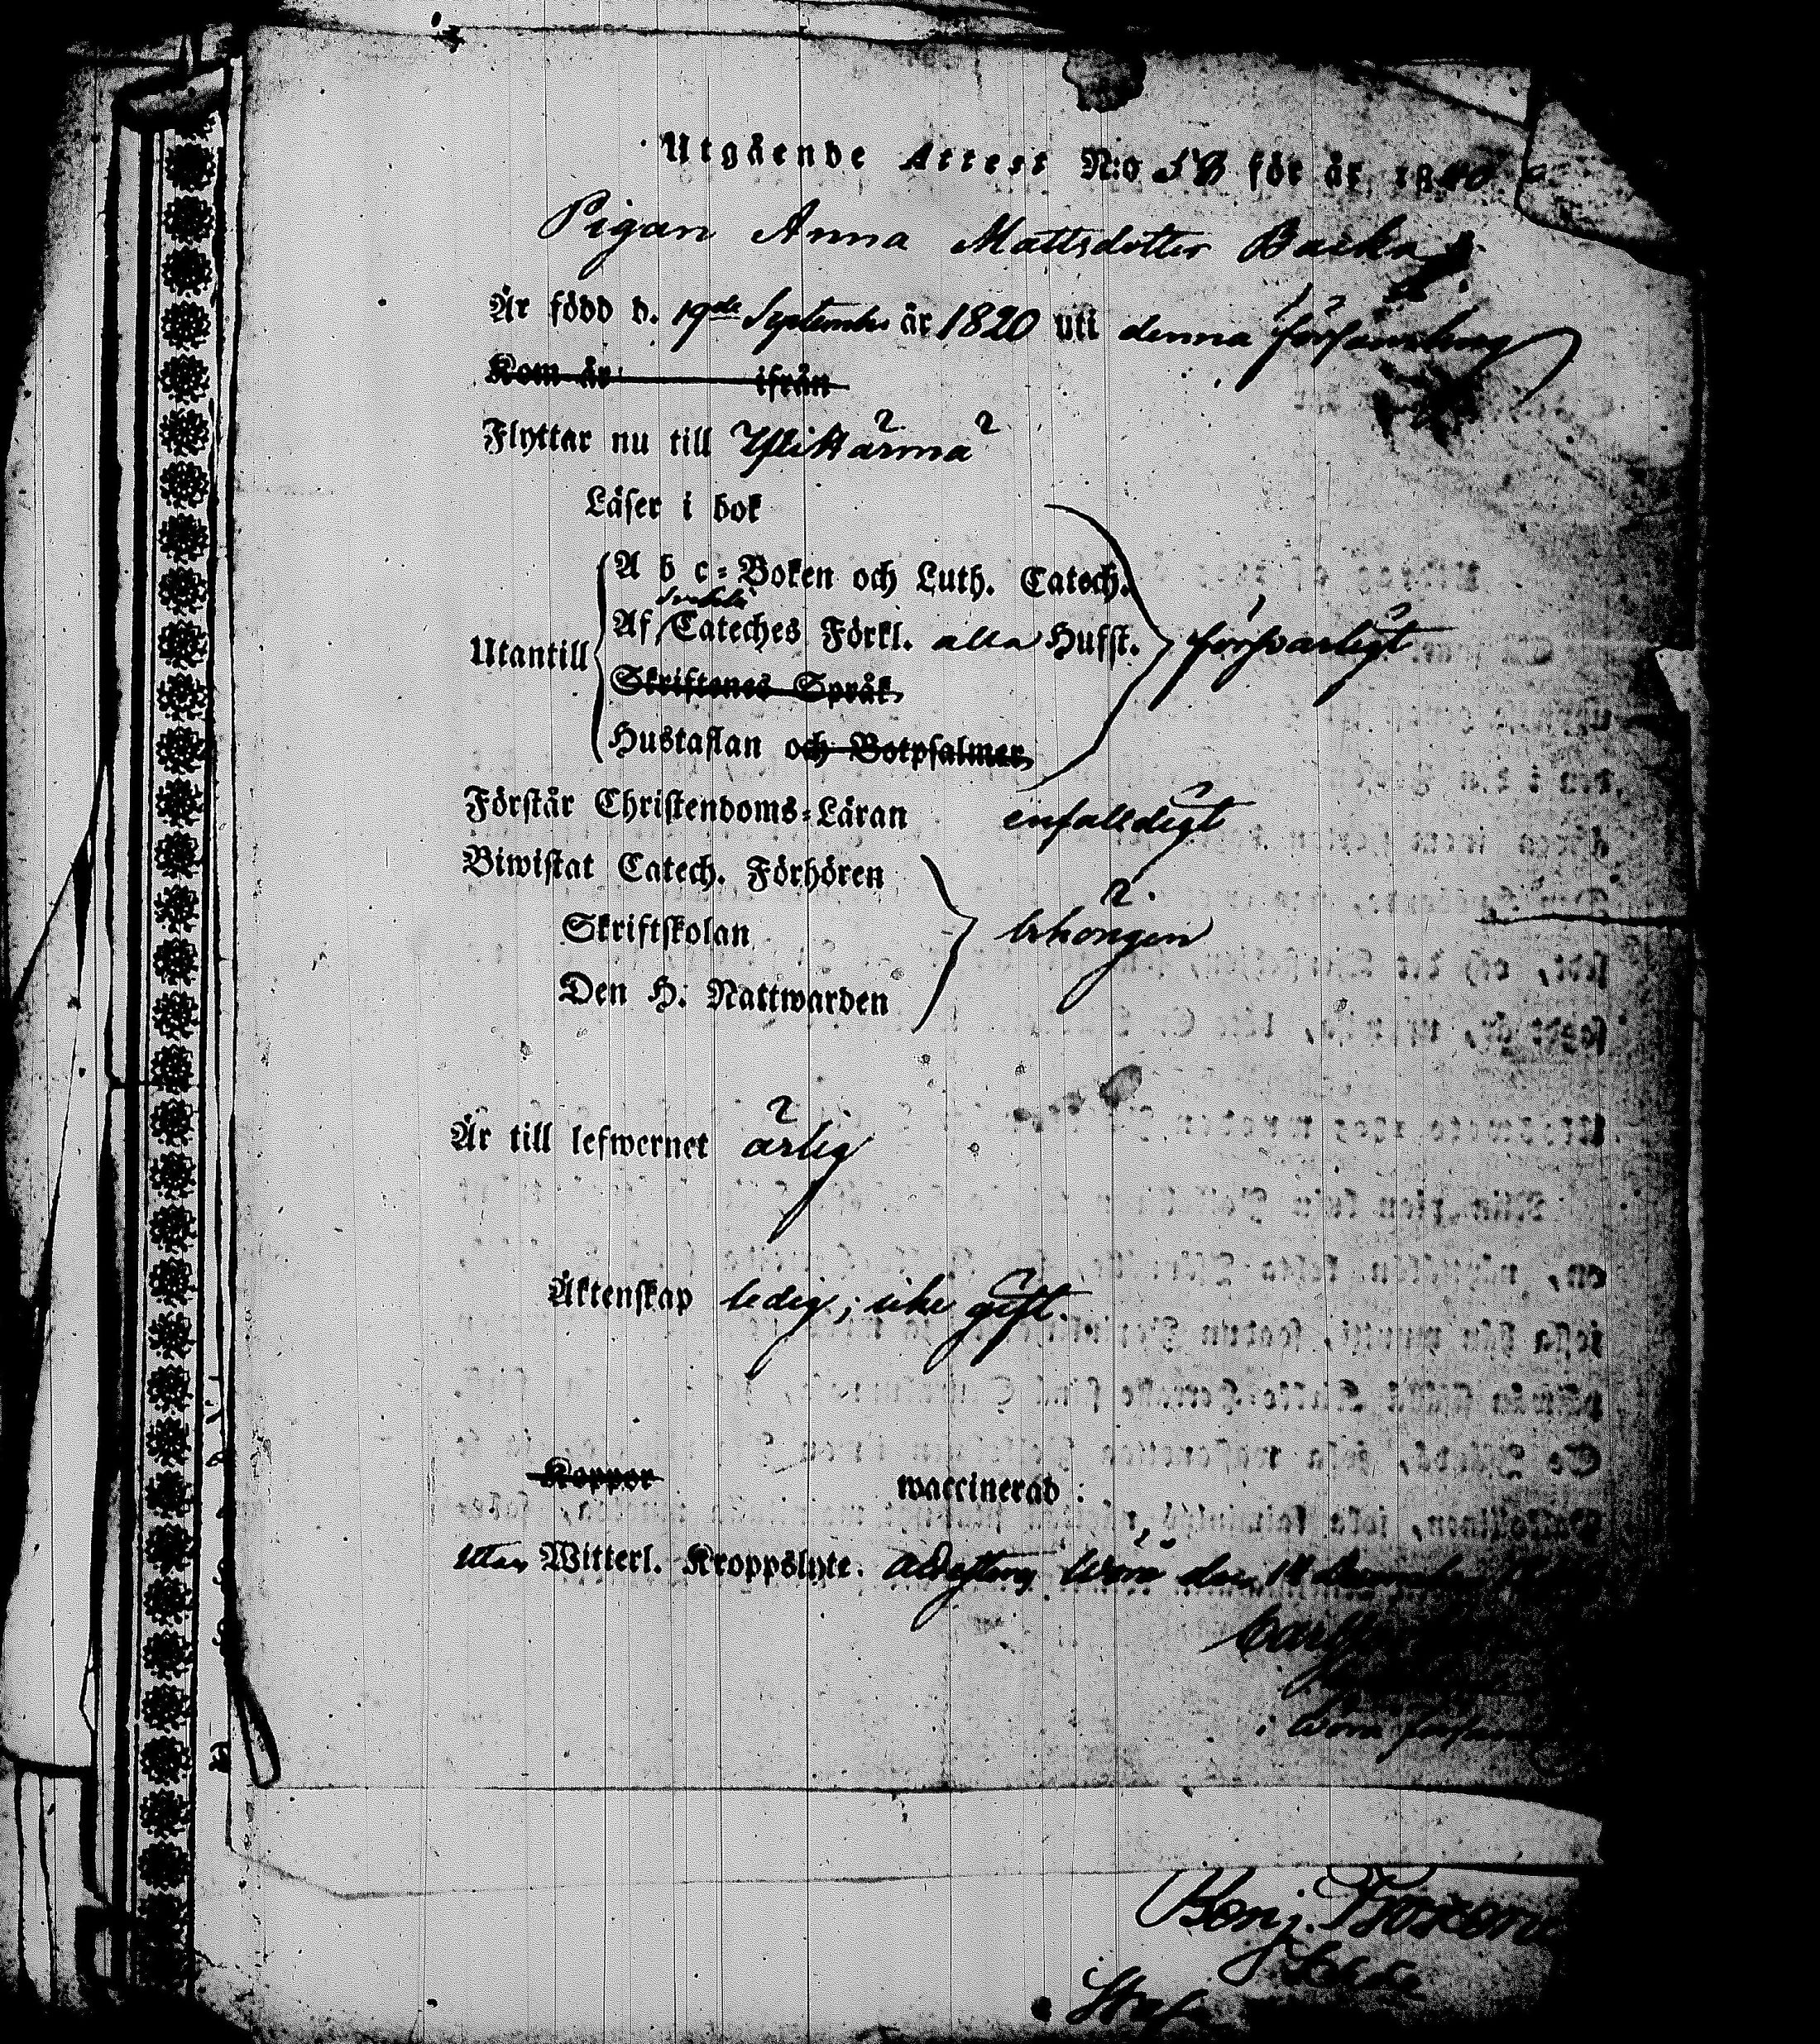 Utgående Attest N:o 58 för år 1840
Pigan Anna Mattsdotter Backa
Är född d. 19de September år 1820 uti denna församling
Kom år ifrån
Flyttar nu till Ylikärmä
Läser i bok
A b c-Boken och Luth. Catech.
Svebelii
Utantill Af Cateches Förkl. alla Hufst. försvarligt
Skriftenes Språk
Hustaflan och Botpsalmer
Förstår Christendoms-Läran enfalldigt
Biwistat Catech. Förhören
Skriftskolan behörigen
Den H. Nattwarden
Är till lefwernet ärlig
Äktenskap ledig; icke gift.
Koppor waccinerad
utan Witterl. Kroppslyte. Wörå den 18 December
Wörå
Benj.